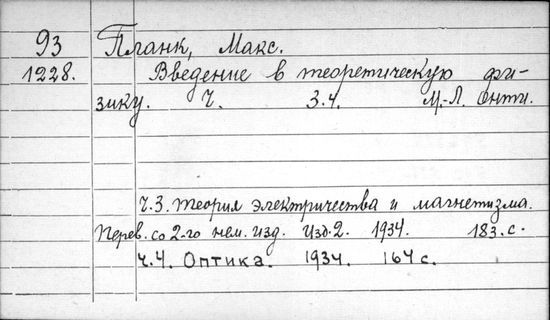 93 Планк, Макс.
1228. Введение в теоретическую фи-
зику. Ч. 3.4. М.-Л. Онти.
ч.3. Теория электричества и магнетизма.
Перев. со 2-го нем. изд. Изд. 2. 1934. 183 с.
ч.4. Оптика. 1934. 164 с.